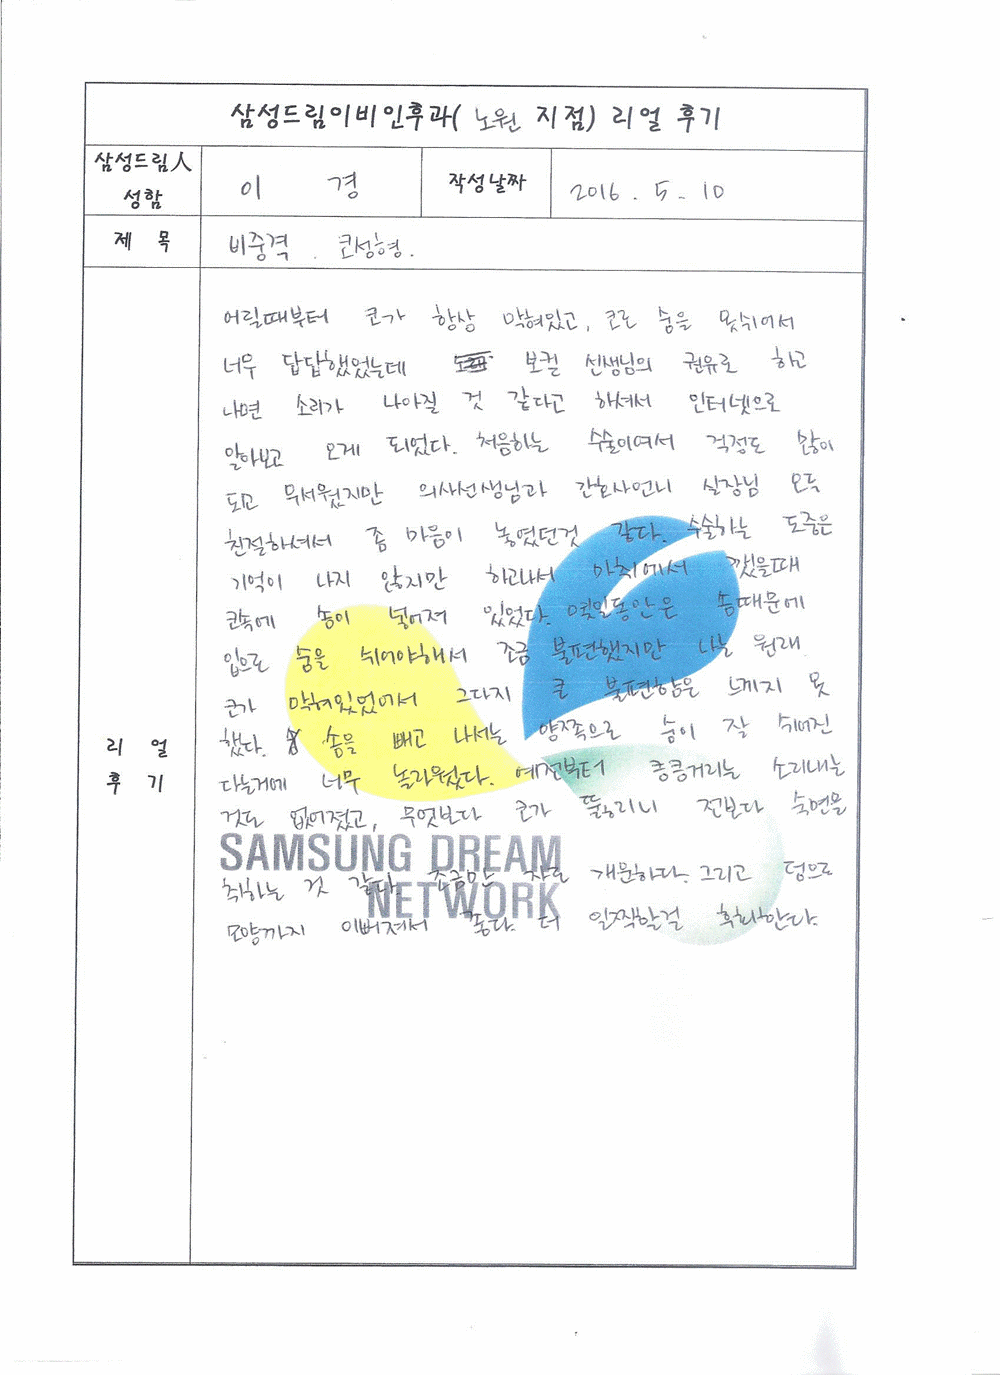 삼성드림이비인후과( 노원 지점) 리얼 후기
삼성드림人 성함
이 경
작성날짜
2016. 5. 10
제 목
비중격. 코성형.
리 얼 후 기
어릴때부터 코가 항상 막혀있고, 코로 숨을 못쉬어서
너무 답답했었는데 보컬 선생님의 권유로 하고
나면 소리가 나아질 것 같다고 하셔서 인터넷으로
알아보고 오게 되었다. 처음하는 수술이여서 걱정도 많이
되고 무서웠지만 의사선생님과 간호사언니 실장님 모두
친절하셔서 좀 마음이 놓였던것 같다. 수술하는 도중은
기억이 나지 않지만 하고나서 마취에서 깼을때
코속에 솜이 넣어져 있었다. 몇일동안은 솜때문에
입으로 숨을 쉬어야해서 조금 불편했지만 나는 원래
코가 막혀있었어서 그다지 큰 불편함은 느끼지 못
했다. 솜을 빼고 나서는 양쪽으로 숨이 잘 쉬어진
다는거에 너무 놀라웠다. 예전부터 킁킁거리는 소리내는
것도 없어졌고, 무엇보다 코가 뚫리니 전보다 숙면을
취하는 것 같다. 조금만 자도 개운하다. 그리고 덤으로
모양까지 이뻐져서 좋다. 더 일찍할걸 후회한다.
SAMSUNG DREAM
NETWORK